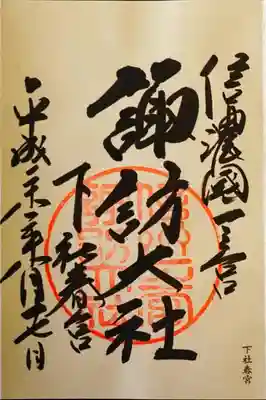 信濃國一之宮
諏訪大社
下社春宮
平成 年 月十七日
下社春宮